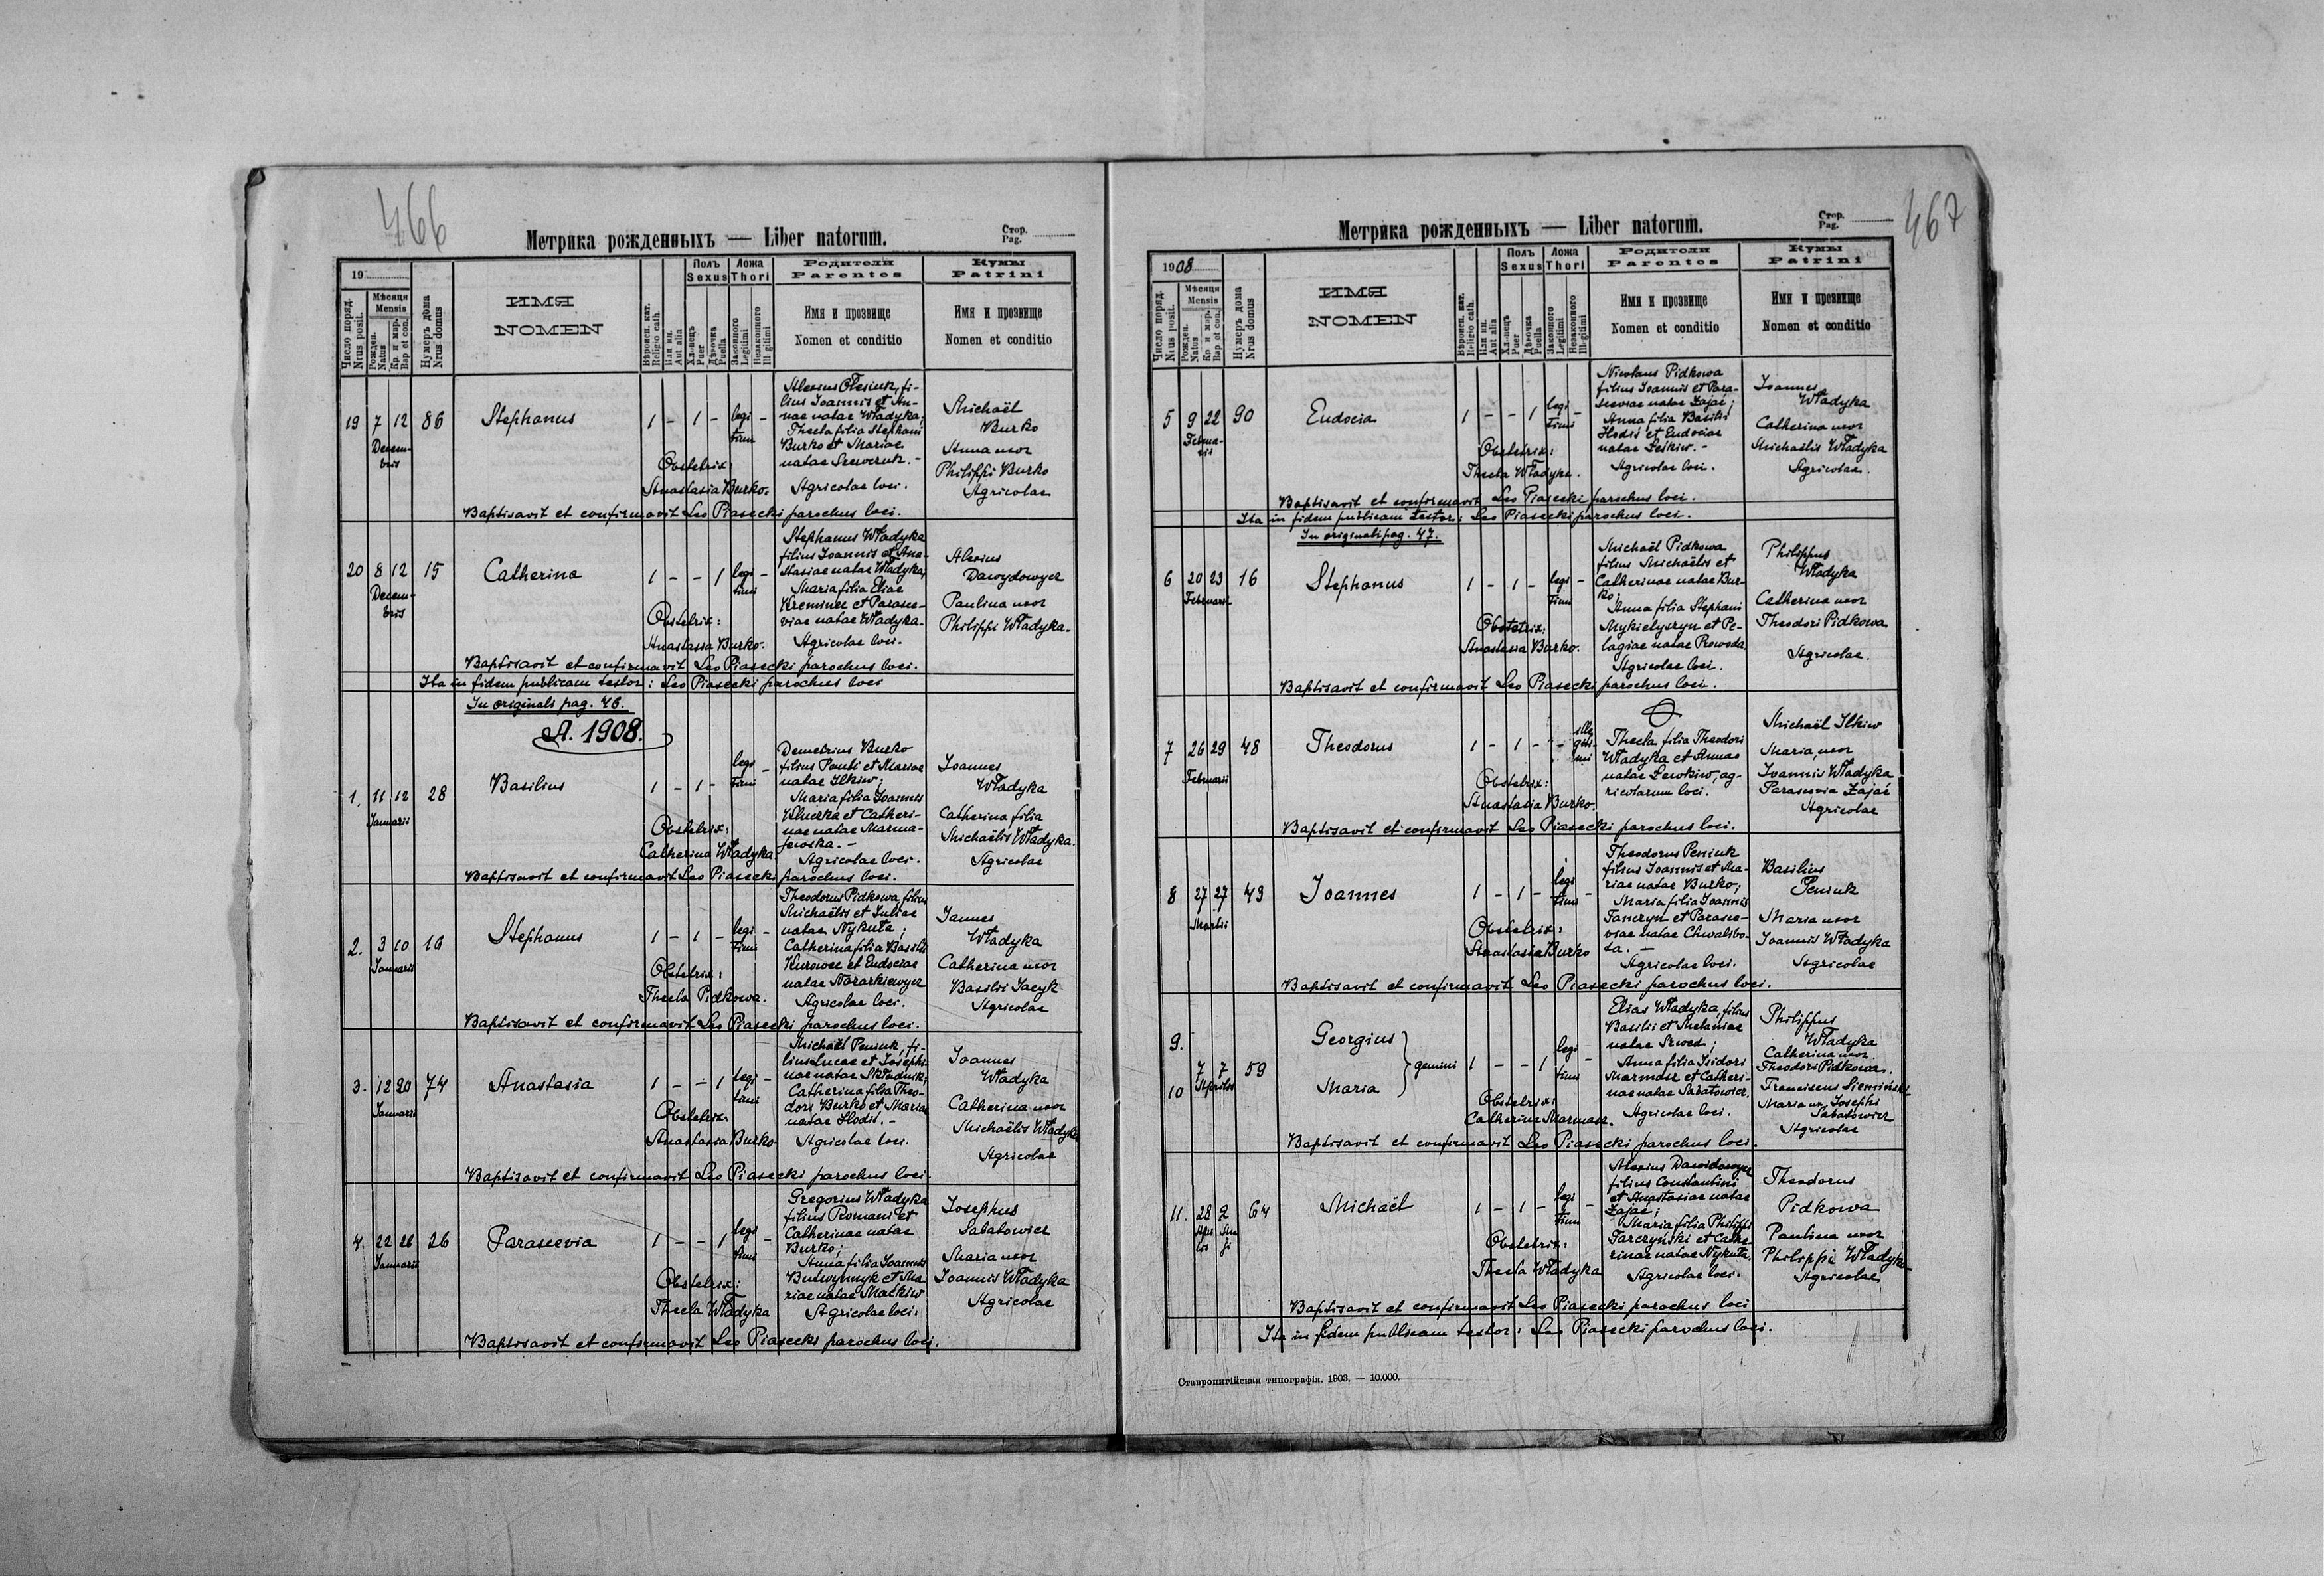 466
Метрика рожденныхъ — Liber natorum.
Стор.
Pag.
19
Число поряд.
Nrus posit.
Мѣсяця
Mensis
Рожден.
Natus
Кр. и мир.
Bap et con.
Нумеръ дома
Nrus domus
ИМЯ
NOMEN
Вѣроисп. кат.
Religio cath.
Или ин.
Aut alia
Полъ
Sexus
Хлопецъ
Puer
Дѣвочка
Puella
Ложа
Thori
Законного
Legitimi
Незаконного
Illegitimi
Родители
Parentes
Имя и прозвище
Nomen et conditio
Кумы
Patrini
Имя и прозвище
Nomen et conditio
19 7 12 86 Stephanus 1 - 1 - legi- -
Decem-
bris
timi
Alexius Olesiuk, fi-
lius Joannis et An-
nae natae Władyka;
Thecla filia Stephani
Burko et Mariae
natae Szewczuk. -
Agricolae loci.
Michaël
Burko
Anna uxor
Philippi Burko
Agricolae
Obstetrix:
Anastasia Burko.
Baptisavit et confirmavit Leo Piasecki parochus loci.
20 8 12 15 Catherina 1 - - 1 legi- -
Decem-
bris
timi
Stephanus Władyka
filius Joannis et Ana-
stasiae natae Władyka;
Maria filia Eliae
Kreminec et Parasce-
viae natae Władyka.
Agricolae loci.
Alexius
Dawydowycz
Paulina uxor
Philippi Władyka.
Obstetrix:
Anastasia Burko.
Baptisavit et confirmavit Leo Piasecki parochus loci.
Ita in fidem publicam testor: Leo Piasecki parochus loci
In originali pag. 46.
A. 1908.
1. 11 12 28 Basilius 1 - 1 - legi- -
Januarii
timi
Demetrius Burko
filius Panti et Mariae
natae Ilkiw;
Maria filia Joannis
Kluczka et Catheri-
nae natae Marma-
jewska. -
Agricolae loci.
Joannes
Władyka
Catherina filia
Michaëlis Władyka.
Agricolae
Obstetrix:
Catherina Władyka
Baptisavit et confirmavit Leo Piasecki parochus loci.
2. 3 10 16 Stephanus 1 - 1 - legi- -
Januarii
timi
Theodorus Pidkowa, filius
Michaëlis et Juliae
natae Nykuta;
Catherina filia Basilii
Kurowec et Eudociae
natae Nazarkiewycz
Agricolae loci.
Jannes
Władyka
Catherina uxor
Basilii Jacyk
Agricolae
Obstetrix:
Thecla Pidkowa.
Baptisavit et confirmavit Leo Piasecki parochus loci.
3. 12 20 74 Anastasia 1 - - 1 legi- -
Januarii
timi
Michaël Peniuk, fi-
lius Lucae et Josephi-
nae natae Składnik;
Catherina filia Theo-
dori Burko et Mariae
natae Hodis. -
Agricolae loci.
Joannes
Władyka
Catherina uxor
Michaëlis Władyka
Agricolae
Obstetrix:
Anastasia Burko
Baptisavit et confirmavit Leo Piasecki parochus loci.
4. 22 26 26 Parascevia 1 - - 1 legi- -
Januarii
timi
Gregorius Władyka
filius Romani et
Catherinae natae
Burko;
Anna filia Joannis
Budwynnyk et Ma-
riae natae Mackiw
Agricolae loci.
Josephus
Sabatowicz
Maria uxor
Joannis Władyka
Agricolae
Obstetrix:
Thecla Władyka
Baptisavit et confirmavit Leo Piasecki parochus loci.
467
Метрика рожденныхъ — Liber natorum.
Стор.
Pag.
1908
Число поряд.
Nrus posit.
Мѣсяця
Mensis
Рожден.
Natus
Кр. и мир.
Bap et con.
Нумеръ дома
Nrus domus
ИМЯ
NOMEN
Вѣроисп. кат.
Religio cath.
Или ин.
Aut alia
Полъ
Sexus
Хлопецъ
Puer
Дѣвочка
Puella
Ложа
Thori
Законного
Legitimi
Незаконного
Illegitimi
Родители
Parentes
Имя и прозвище
Nomen et conditio
Кумы
Patrini
Имя и прозвище
Nomen et conditio
5 9 22 90 Eudocia 1 - - 1 legi- -
Februa-
rii
timi
Nicolaus Pidkowa
filius Joannis et Para-
sceviae natae Zając;
Anna filia Basilii
Hodis et Eudociae
natae Leśkiw. -
Agricolae loci.
Joannes
Władyka
Catherina uxor
Michaëlis Władyka
Agricolae.
Obstetrix:
Thecla Władyka.
Baptisavit et confirmavit Leo Piasecki parochus loci.
Ita in fidem publicam testor: Leo Piasecki parochus loci.
In originali pag. 47.
6 20 23 16 Stephanus 1 - 1 - legi- -
Februarii
timi
Michaël Pidkowa
filius Michaëlis et
Catherinae natae Bur-
ko;
Anna filia Stephani
Mykielyszyn et Pe-
lagiae natae Prowoda
Agricolae loci.
Philippus
Władyka
Catherina uxor
Theodori Pidkowa
Agricolae.
Obstetrix:
Anastasia Burko.
Baptisavit et confirmavit Leo Piasecki parochus loci.
7 26 29 48 Theodorus 1 - 1 - - ille-
Februarii
giti-
mi
Thecla filia Theodori
Władyka et Annae
natae Lewkiw, ag-
ricolarum loci.
Michaël Ilkiw
Maria uxor
Joannis Władyka
Parascevia Zając
Agricolae
Obstetrix:
Anastasia Burko.
Baptisavit et confirmavit Leo Piasecki parochus loci.
8 27 27 43 Joannes 1 - 1 - legi- -
Martii
timi
Theodorus Peniuk
filius Joannis et Ma-
riae natae Burko;
Maria filia Joannis
Janczyn et Parasce-
viae natae Chwalibo-
ta. -
Agricolae loci.
Basilius
Peniuk
Maria uxor
Joannis Władyka
Agricolae
Obstetrix:
Anastasia Burko
Baptisavit et confirmavit Leo Piasecki parochus loci.
9. Georgius
10 7 7 59 Maria } gemini 1 - - 1 legi- -
Aprilis
timi
Elias Władyka, filius
Basilii et Melaniae
natae Szwed;
Anna filia Isidori
Marmasz et Catheri-
nae natae Sabatowicz.
Agricolae loci.
Philippus
Władyka
Catherina uxor
Theodori Pidkowa.
Franciscus Siemiński
Maria ux. Josephi
Sabatowicz
Agricolae
Obstetrix:
Catherina Marmasz.
Baptisavit et confirmavit Leo Piasecki parochus loci.
11. 28 2 64 Michaël 1 - 1 - legi- -
Apri-
lis
Ma-
ji
timi
Alexius Dawidowycz
filius Constantini
et Anastasiae natae
Zając;
Maria filia Philippi
Tarczyński et Cathe-
rinae natae Nykuta.
Agricolae loci.
Theodorus
Pidkowa
Paulina uxor
Philippi Władyka
Agricolae
Obstetrix:
Thecla Władyka
Baptisavit et confirmavit Leo Piasecki parochus loci
Ita in fidem publicam testor: Leo Piasecki parochus loci.
Ставропигійская типографія. 1903. — 10.000.